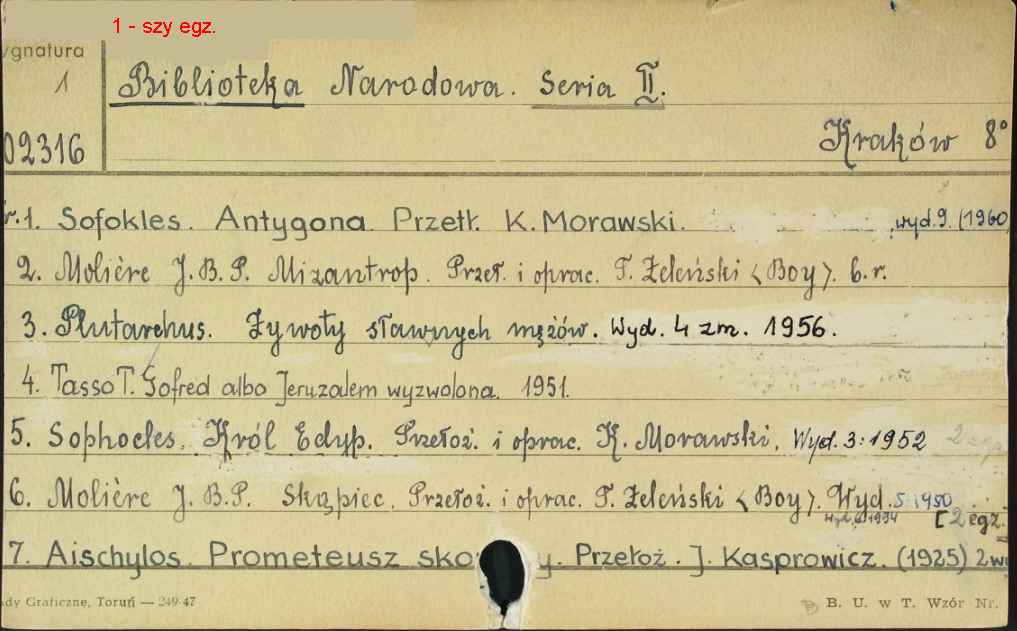 1 - szy egz.
ygnatura
1
Biblioteka Narodowa. Seria II.
02316
Kraków 8°
r.1. Sofokles. Antygona. Przetł. K. Morawski. wyd. 9. (1960
2. Molière J.B.P. Mizantrop. Przeł. i oprac. T. Żeleński <Boy>. b.r.
3. Plutarchus. Żywoty sławnych mężów. Wyd. 4 zm. 1956.
4. Tasso T. Gofred albo Jeruzalem wyzwolona. 1951.
5. Sophocles. Król Edyp. Przełoż. i oprac. K. Morawski. Wyd. 3: 1952 2 egz
6. Molière J.B.P. Skąpiec. Przełoż. i oprac. T. Żeleński <Boy>. Wyd. 5 1950
[2 egz.
7. Aischylos. Prometeusz sko y. Przełoż. J. Kasprowicz. (1925) 2 w
dy Graficzne, Toruń — 249-47
B. U. w T. Wzór Nr.